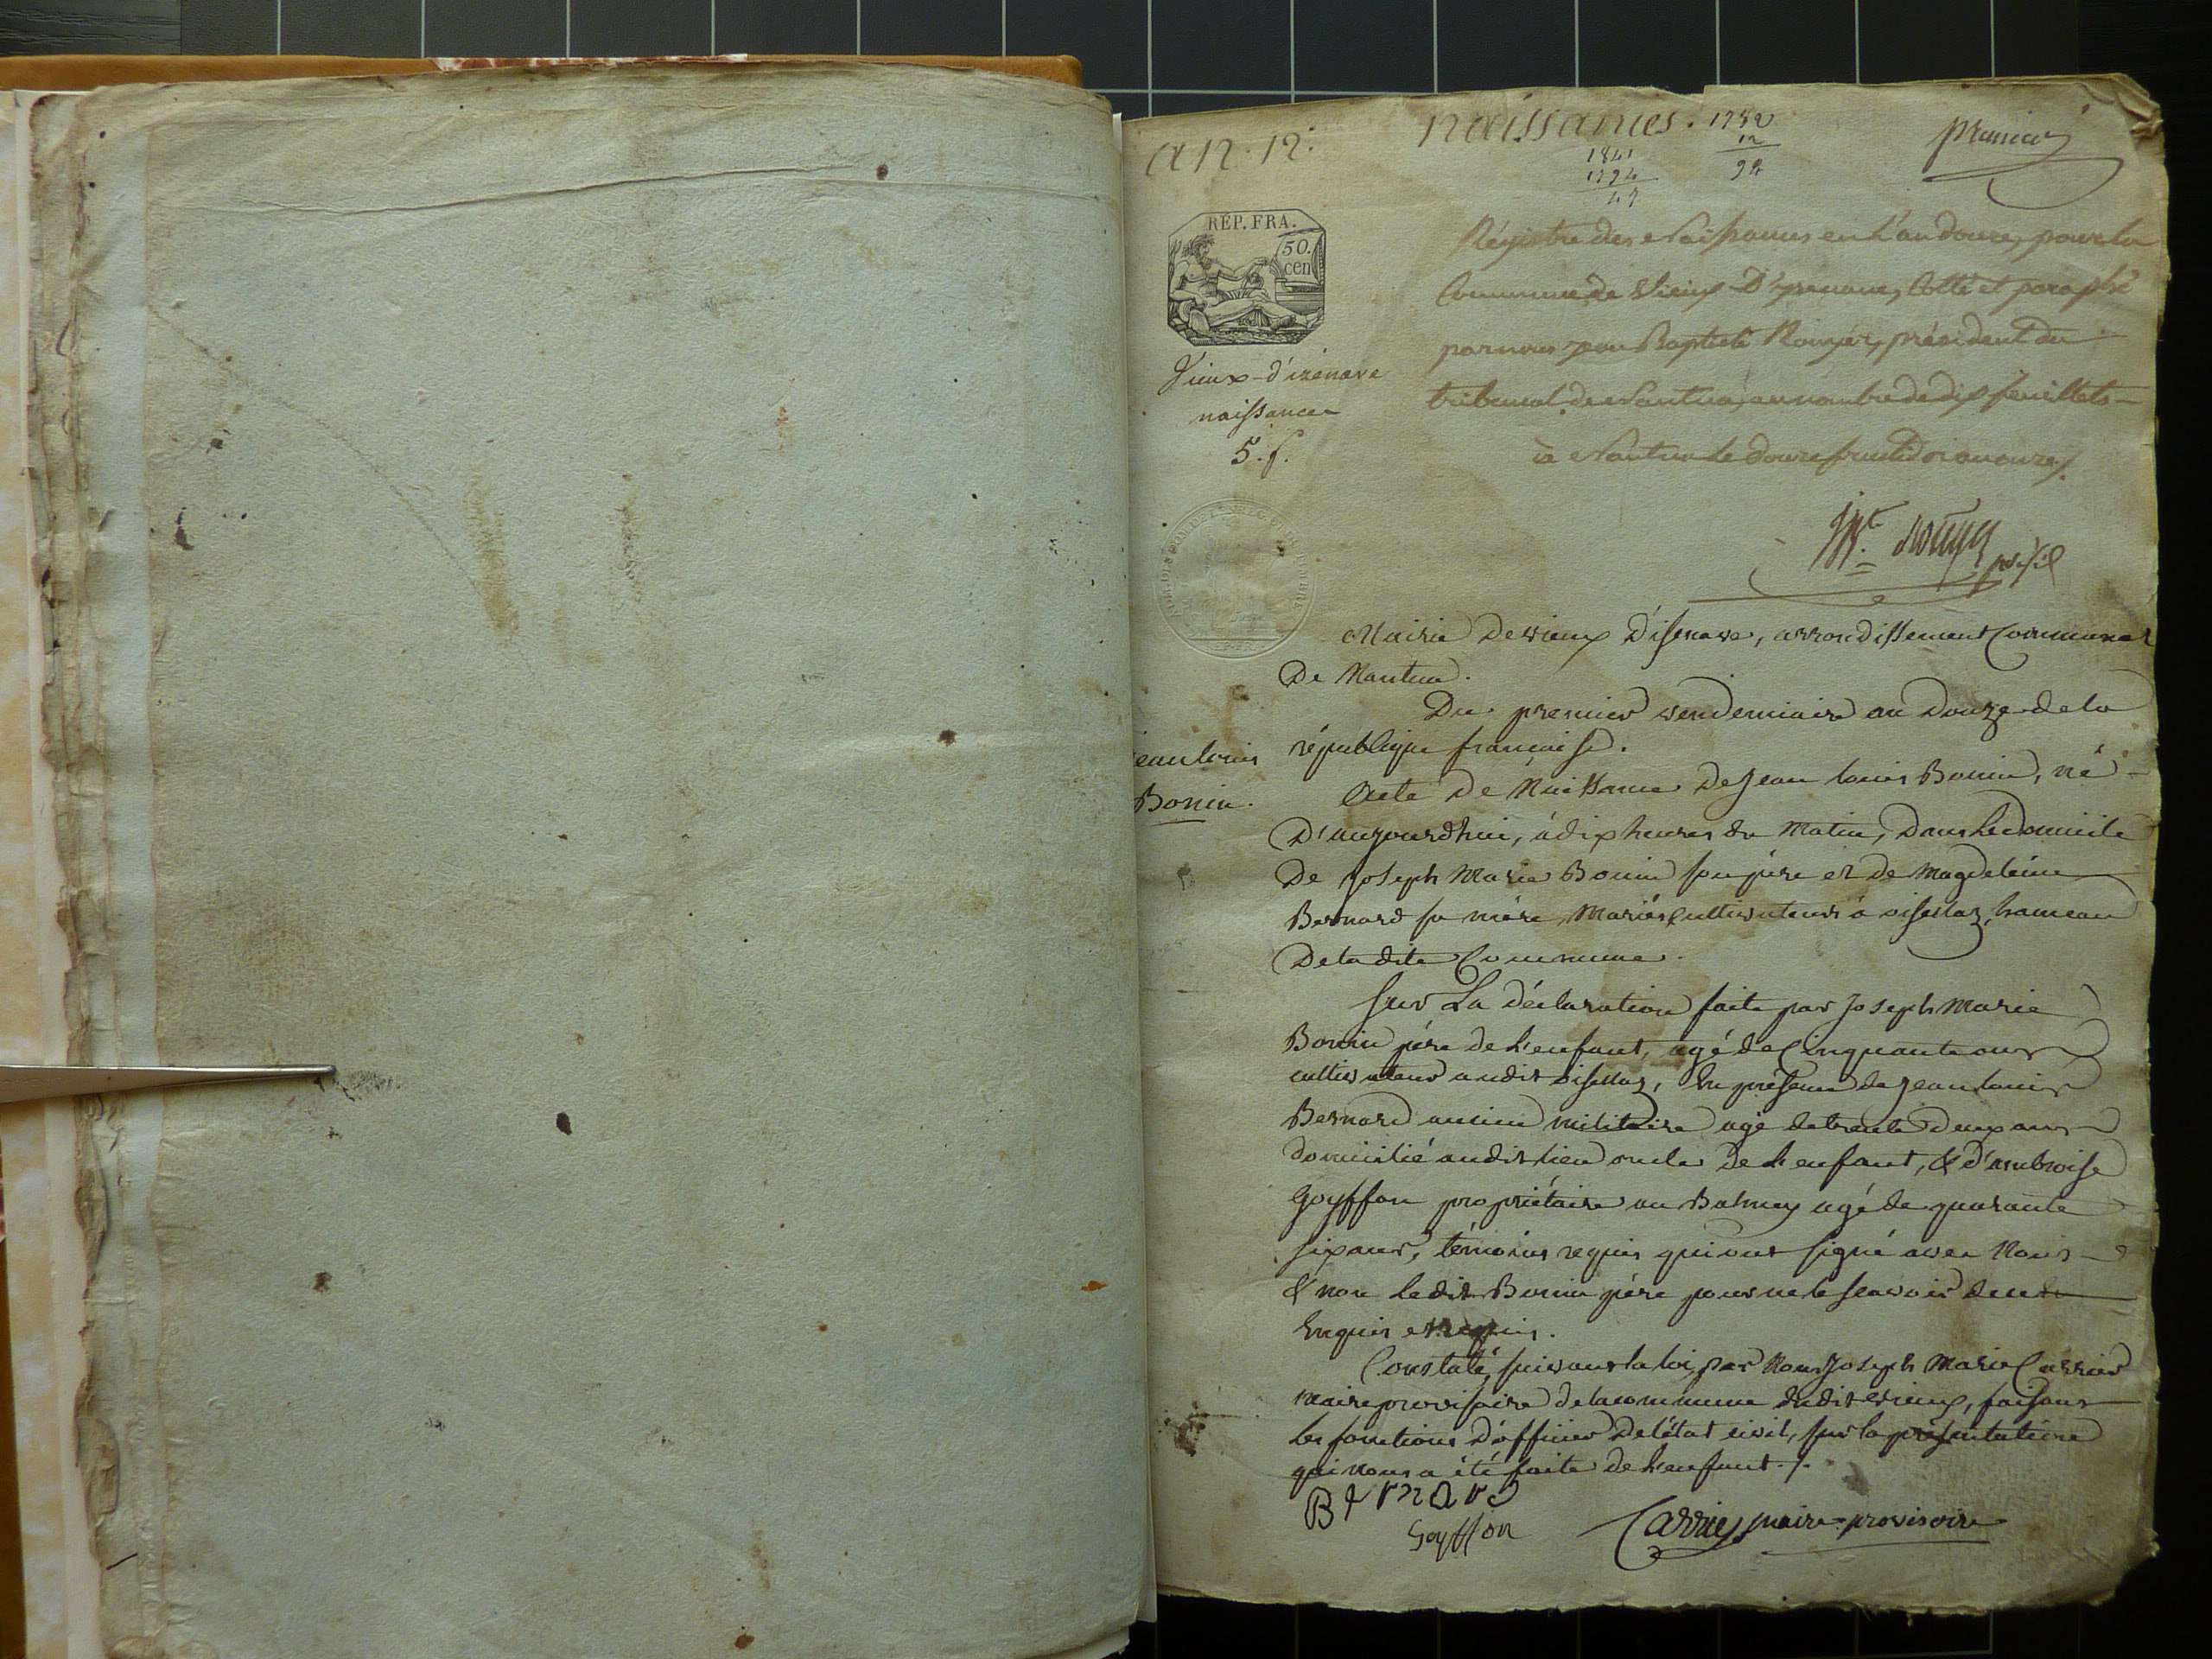 an. 12.
naissances.
1752
12
1841
1794
47
premier
RÉP. FRA.
50.
cen
Régistre des Naissances en l'an douze, pour la
Commune de Vieux D'yzenave, Cotté et paraphé
par nous jean Baptiste Rouyer, président du
tribunal de Nantua, au nombre de dix feuillets
à Nantua le douze fructidor an onze.
Vieux-d'izenave
naissances
5. f.
Jn Bte Rouyer
Mairie De vieux D'isenave, arrondissement Communal
De Nantua.
Du premier vendemiaire an Douze de la
république française.
Jean louis
Bonin.
Acte De Naissance De Jean louis Bonin, né
D'aujourdhui, à dix heures du Matin, Dans le domicile
De Joseph Marie Bonin son père et de Magdeleine
Bernard sa mère, Mariés cultivateurs à oisellaz, hameau
De la dite Commune.
Sur La déclaration faite par Joseph Marie
Bonin père de l'enfant, agé de Cinquante ans
cultivateur audit oisellaz, En présence de Jean louis
Bernard ancien militaire agé de trente deux ans
domicilié audit lieu oncle de l'enfant, & d'ambroise
Goyffon propriétaire au Balmey agé de quarante
six ans, témoins requis qui ont signé avec Nous
& non ledit Bonin père pour ne le scavoir de ce
Enquis et Requis.
Constaté, suivant la loi, par Nous Joseph Marie Carrier
maire provisoire de la commune dudit vieux, faisant
les fonctions D'officier De l'état civil, sur la présentation
qui nous a été faite de l'enfant ./.
Bernard
Goyffon
Carrier maire provisoire